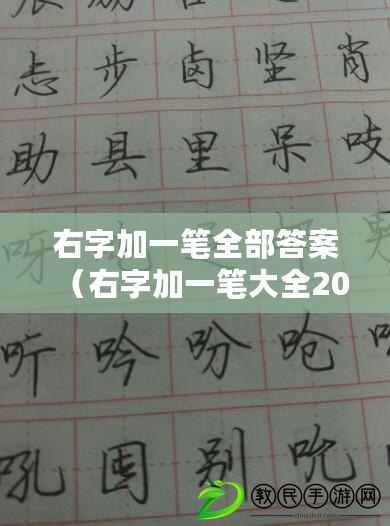 步卤坚肖
助县里呆吱
呀
右字加一笔全部答案
（右字加一笔大全20
听吟吩呛
吼囤别吮
教民手游网
dmydcd.com